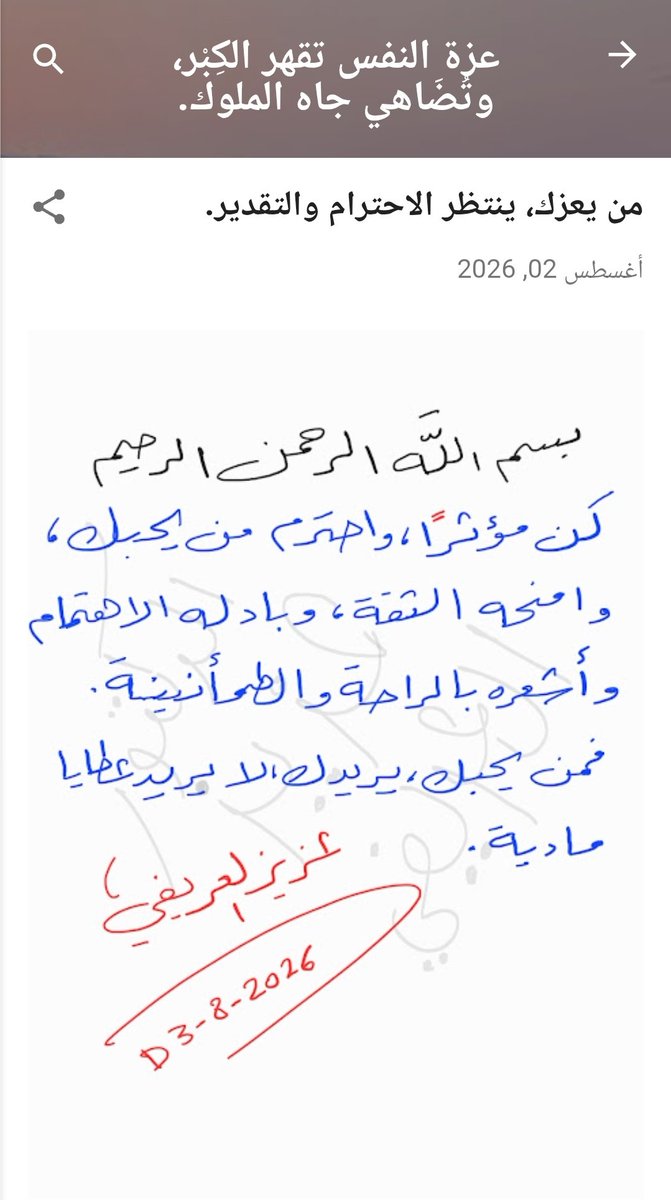 عزة النفس تقهر الكِبْر،
وتُضَاهي جاه الملوك.
من يعزك، ينتظر الاحترام والتقدير.
أغسطس 02, 2026
بسم اللَّه الرحمن الرحيم
كن مؤثرًا، واحترم من يحبك،
وامنحه الثقة، وبادله الاهتمام
وأشعره بالراحة والطمأنينة.
فمن يحبك، يريدك، لا يريد عطايا
مادية.
عزيز العريفي
D 3-8-2026